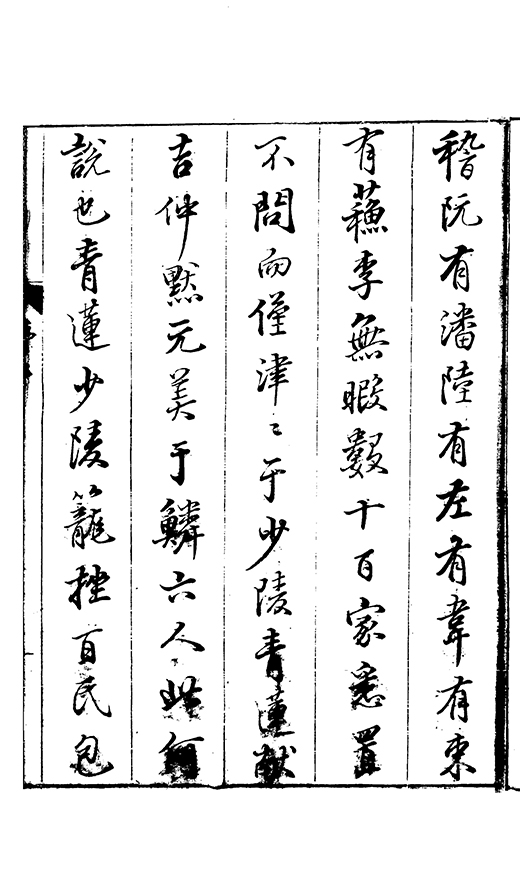 嵇阮有潘陸有左有韋有束
有蘇李無暇數十百家悉置
不問而僅津〻于少陵青蓮獻
吉仲默元美于鱗六人此何
說也青蓮少陵籠挫百氏包